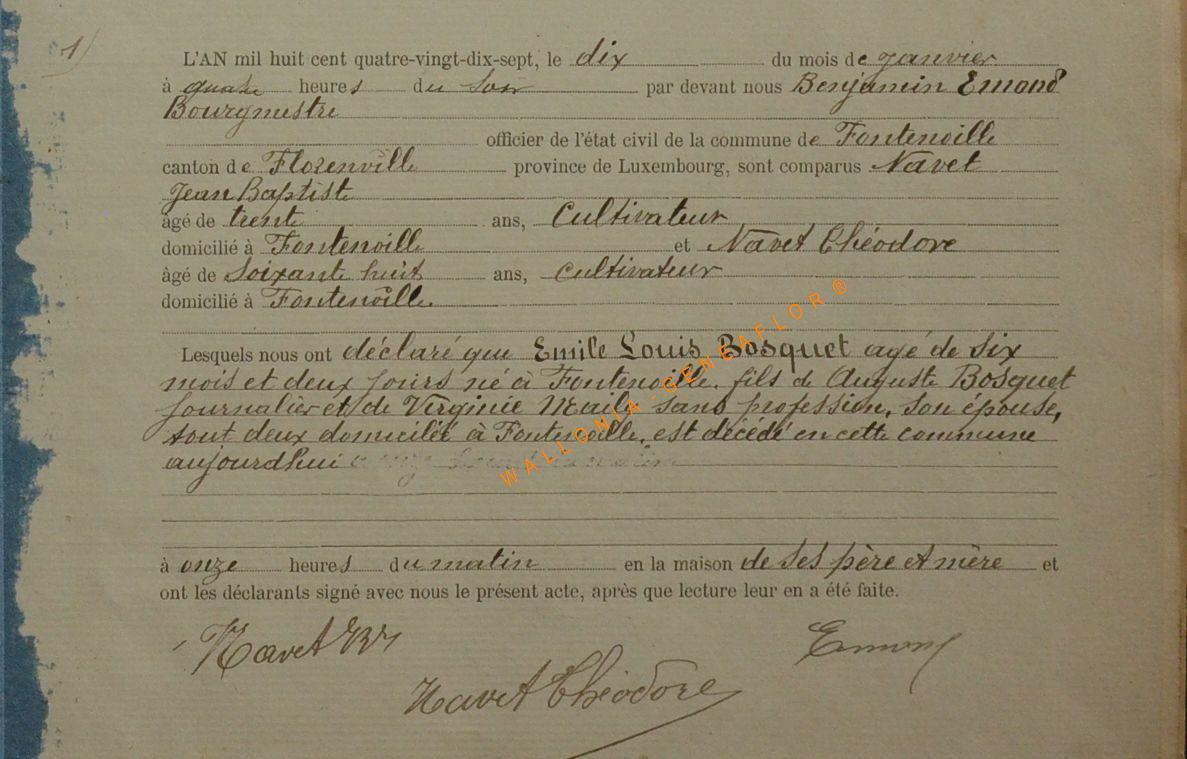 1)
L'AN mil huit cent quatre-vingt-dix-sept, le dix du mois de janvier
à quatre heures du soir par devant nous Benjamin Emond
Bourgmestre
officier de l'état civil de la commune de Fontenoille
canton de Florenville province de Luxembourg, sont comparus Navet
Jean Baptiste
âgé de trente ans, Cultivateur
domicilié à Fontenoille et Navet Théodore
âgé de soixante huit ans, cultivateur
domicilié à Fontenoille.
Lesquels nous ont déclaré que Emile Louis Bosquet agé de six
mois et deux jours né à Fontenoille. fils de Auguste Bosquet
journalier et de Virginie sans profession, son épouse,
tout deux domicilié à Fontenoille, est décédé en cette commune
aujourdhui a onze heures du matin
à onze heures du matin en la maison de ses père et mère et
ont les déclarants signé avec nous le présent acte, après que lecture leur en a été faite.
Navet JBt
Emond
Navet Théodore
WALLONIA-GENEAFLOR®